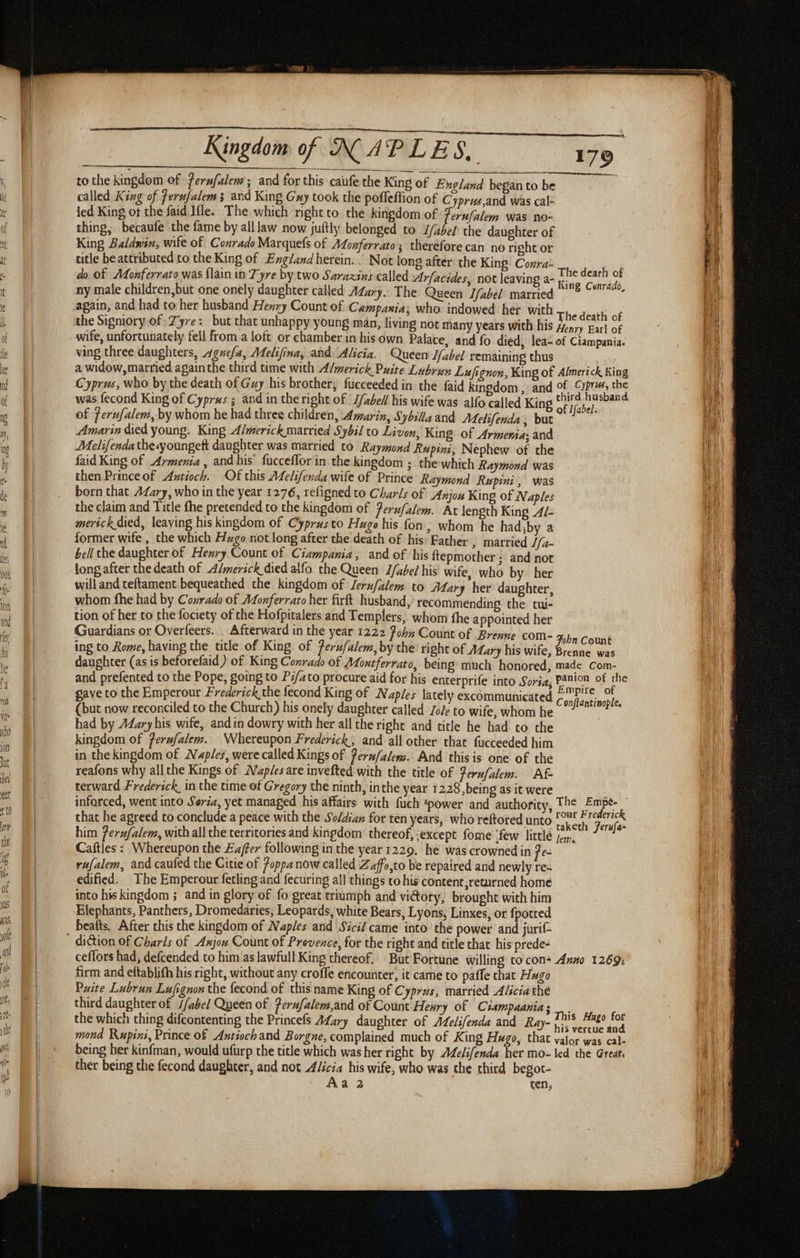 Kingdom of NAPLES. 179
to the kingdom of Jeruſalem; and for this cauſe the King of England began to be
called King of Jeruſalem; and King Guy took the poſſeſſion of Cyprus, and was cal-
led King of the ſaid Iſle. The which right to the kingdom of Jeruſalem was no-
thing, becauſe the ſame by all law now juſtly belonged to Iſabel the daughter of
King Baldwin, wife of Conrado Marqueſs of Monferrato; therefore can no right or
title be attributed to the King of England herein. Not long after the King Conra-
do of Monferrato was ſlain in Tyre by two Sarazins called Arſacides, not leaving a-
The death of
King Conrado,
ny male children, but one onely daughter called Mary. The Queen Iſabel married
again, and had to her husband Henry Count of Campania, who indowed her with
the Signiory of Tyre: but that unhappy young man, living not many years with his
The death of
Henry Earl of
Ciampania.
wife, unfortunately fell from a loft or chamber in his own Palace, and ſo died, lea-
ving three daughters, Agneſa, Meliſina, and Alicia. Queen Iſabel remaining thus
a widow, married again the third time with Almerick Puite Lubrun Luſignon, King of
Almerick King
of Cyprus, the
third husband
of Iſabel.
Cyprus, who by the death of Guy his brother, ſucceeded in the ſaid kingdom, and
was ſecond King of Cyprus; and in the right of Iſabell his wife was alſo called King
of Jeruſalem, by whom he had three children, Amarin, Sybilla and Meliſenda, but
Amarin died young. King Almerick married Sybil to Livon, King of Armenia; and
Meliſenda the youngeſt daughter was married to Raymond Rupini, Nephew of the
ſaid King of Armenia, and his ſucceſſor in the kingdom; the which Raymond was
then Prince of Antioch. Of this Meliſenda wife of Prince Raymond Rupini, was
born that Mary, who in the year 1276, reſigned to Charls of Anjou King of Naples
the claim and Title ſhe pretended to the kingdom of Jeruſalem. At length King Al-
merick died, leaving his kingdom of Cyprus to Hugo his ſon, whom he had by a
former wife, the which Hugo not long after the death of his Father, married Iſa-
bell the daughter of Henry Count of Ciampania, and of his ſtepmother; and not
long after the death of Almerick died alſo the Queen Iſabel his wife, who by her
will and teſtament bequeathed the kingdom of Jeruſalem to Mary her daughter,
whom ſhe had by Conrado of Monferrato her firſt husband, recommending the tui-
tion of her to the ſociety of the Hoſpitalers and Templers, whom ſhe appointed her
Guardians or Overſeers. Afterward in the year 1222 John Count of Brenne com-
John Count
Brenne was
made Com-
panion of the
Empire of
Conſtantinople.
ing to Rome, having the title of King of Jeruſalem, by the right of Mary his wife,
daughter (as is beforeſaid) of King Conrado of Montferrato, being much honored,
and preſented to the Pope, going to Piſa to procure aid for his enterpriſe into Soria,
gave to the Emperour Frederick the ſecond King of Naples lately excommunicated
(but now reconciled to the Church) his onely daughter called Iole to wife, whom he
had by Mary his wife, and in dowry with her all the right and title he had to the
kingdom of Jeruſalem. Whereupon Frederick, and all other that ſucceeded him
in the kingdom of Naples, were called Kings of Jeruſalem. And this is one of the
reaſons why all the Kings of Naples are inveſted with the title of Jeruſalem. Af-
terward Frederick, in the time of Gregory the ninth, in the year 1228, being as it were
inforced, went into Soria, yet managed his affairs with ſuch power and authority,
The Empe-
rour Frederick
taketh Jeruſa-
lem.
that he agreed to conclude a peace with the Soldian for ten years, who reſtored unto
him Jeruſalem, with all the territories and kingdom thereof, except ſome few little
Caſtles: Whereupon the Eaſter following in the year 1229. he was crowned in Je-
ruſalem, and cauſed the Citie of Joppa now called Zaffo, to be repaired and newly re-
edified. The Emperour ſetling and ſecuring all things to his content, returned home
into his kingdom; and in glory of ſo great triumph and victory, brought with him
Elephants, Panthers, Dromedaries, Leopards, white Bears, Lyons, Linxes, or ſpotted
beaſts. After this the kingdom of Naples and Sicil came into the power and juriſ-
diction of Charls of Anjou Count of Provence, for the right and title that his prede-
ceſſors had, deſcended to him as lawfull King thereof. But Fortune willing to con-
Anno 1269.
firm and eſtabliſh his right, without any croſſe encounter, it came to paſſe that Hugo
Puite Lubrun Luſignon the ſecond of this name King of Cyprus, married Alicia the
third daughter of Iſabel Queen of Jeruſalem, and of Count Henry of Ciampaania;
the which thing diſcontenting the Princeſs Mary daughter of Meliſenda and Ray-
This Hugo for
his vertue and
valor was cal-
led the Great.
mond Rupini, Prince of Antioch and Borgne, complained much of King Hugo, that
being her kinſman, would uſurp the title which was her right by Meliſenda her mo-
ther being the ſecond daughter, and not Alicia his wife, who was the third begot-
Aa 2 ten,